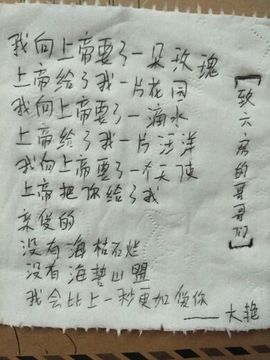 我向上帝要了一朵玫瑰
上帝给了我一片花园
我向上帝要了一滴水
上帝给了我一片汪洋
我向上帝要了一个天使
上帝把你给了我
亲俊的
没有海枯石烂
没有海誓山盟
我会比上一秒更加俊你
——大艳
【致六房的哥哥们】